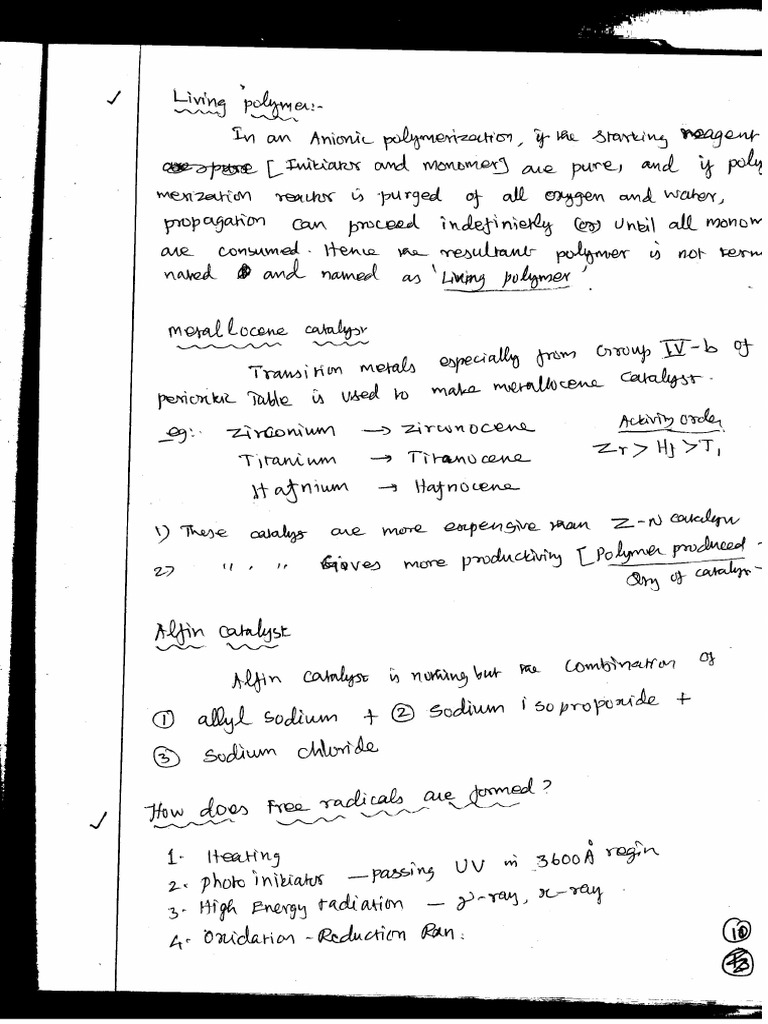 Living polymer:-
In an Anionic polymerization, if the starking reagent
are pure [Initiator and monomer] are pure, and if poly
merization reactor is purged of all oxygen and water,
propagation can proceed indefinietly (or) Until all monom
are consumed. Hence the resultant polymer is not termi
nated and named as 'Living polymer'.
metallocene catalyst
Transition metals especially from Group IV-b of
periodic Table is used to make metallocene catalyst.
eg:- Zirconium → Zirconocene Activity order
Titanium → Titanocene Zr > Hf > Ti
Hafnium → Hafnocene
1) These catalys are more expensive than Z-N catalyst
2) " , " Gives more productivity [Polymer produced
Qty of catalyst
Alfin catalyst
Alfin catalyst is nothing but the combination of
① allyl sodium + ② sodium isopropoxide +
③ sodium chloride
How does Free radicals are formed?
1. Heating
2. photo initiator – passing UV in 3600Å regin
3. High Energy radiation – γ-ray, x-ray.
4. Oxidation - Reduction Rxn.
10